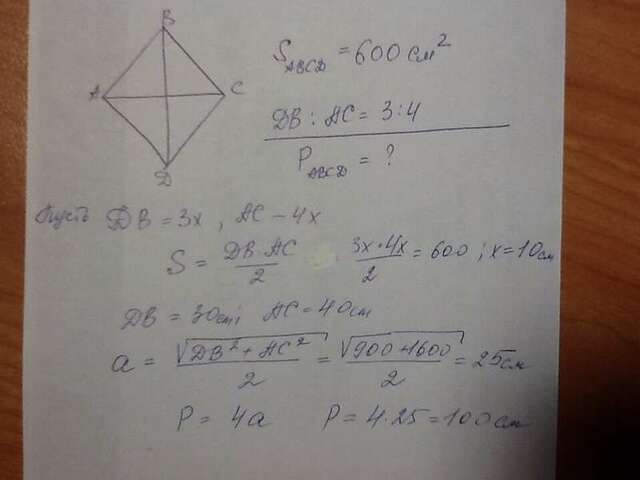 B
A
C
D
S_ABCD = 600 см²
DB : AC = 3:4
P_ABCD = ?
Пусть DB = 3x, AC – 4x
S = DB·AC/2 3x·4x/2 = 600; x = 10см
DB = 30см; AC = 40см
a = √(DB² + AC²)/2 = √(900+1600)/2 = 25см
P = 4a P = 4·25 = 100см